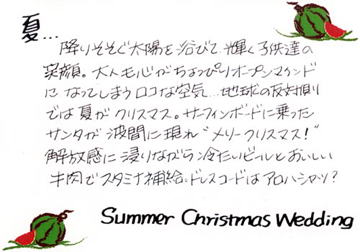 夏…
降りそそぐ太陽を浴びて輝く子供達の
笑顔。大人も心がちょっぴりオープンマインド
になってしまうロコな空気…地球の反対側
では夏がクリスマス。サーフィンボードに乗った
サンタが波間に現れ"メリークリスマス!"
解放感に浸りながら冷たいビールとおいしい
牛肉でスタミナ補給。ドレスコードはアロハシャツ?
Summer Christmas Wedding